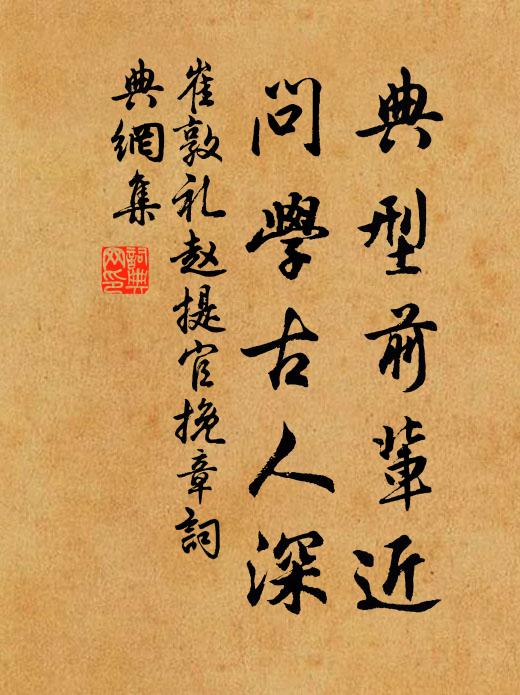 典型前輩近
問學古人深
崔敦礼赵提官挽章詞
典網集
詞典
网印